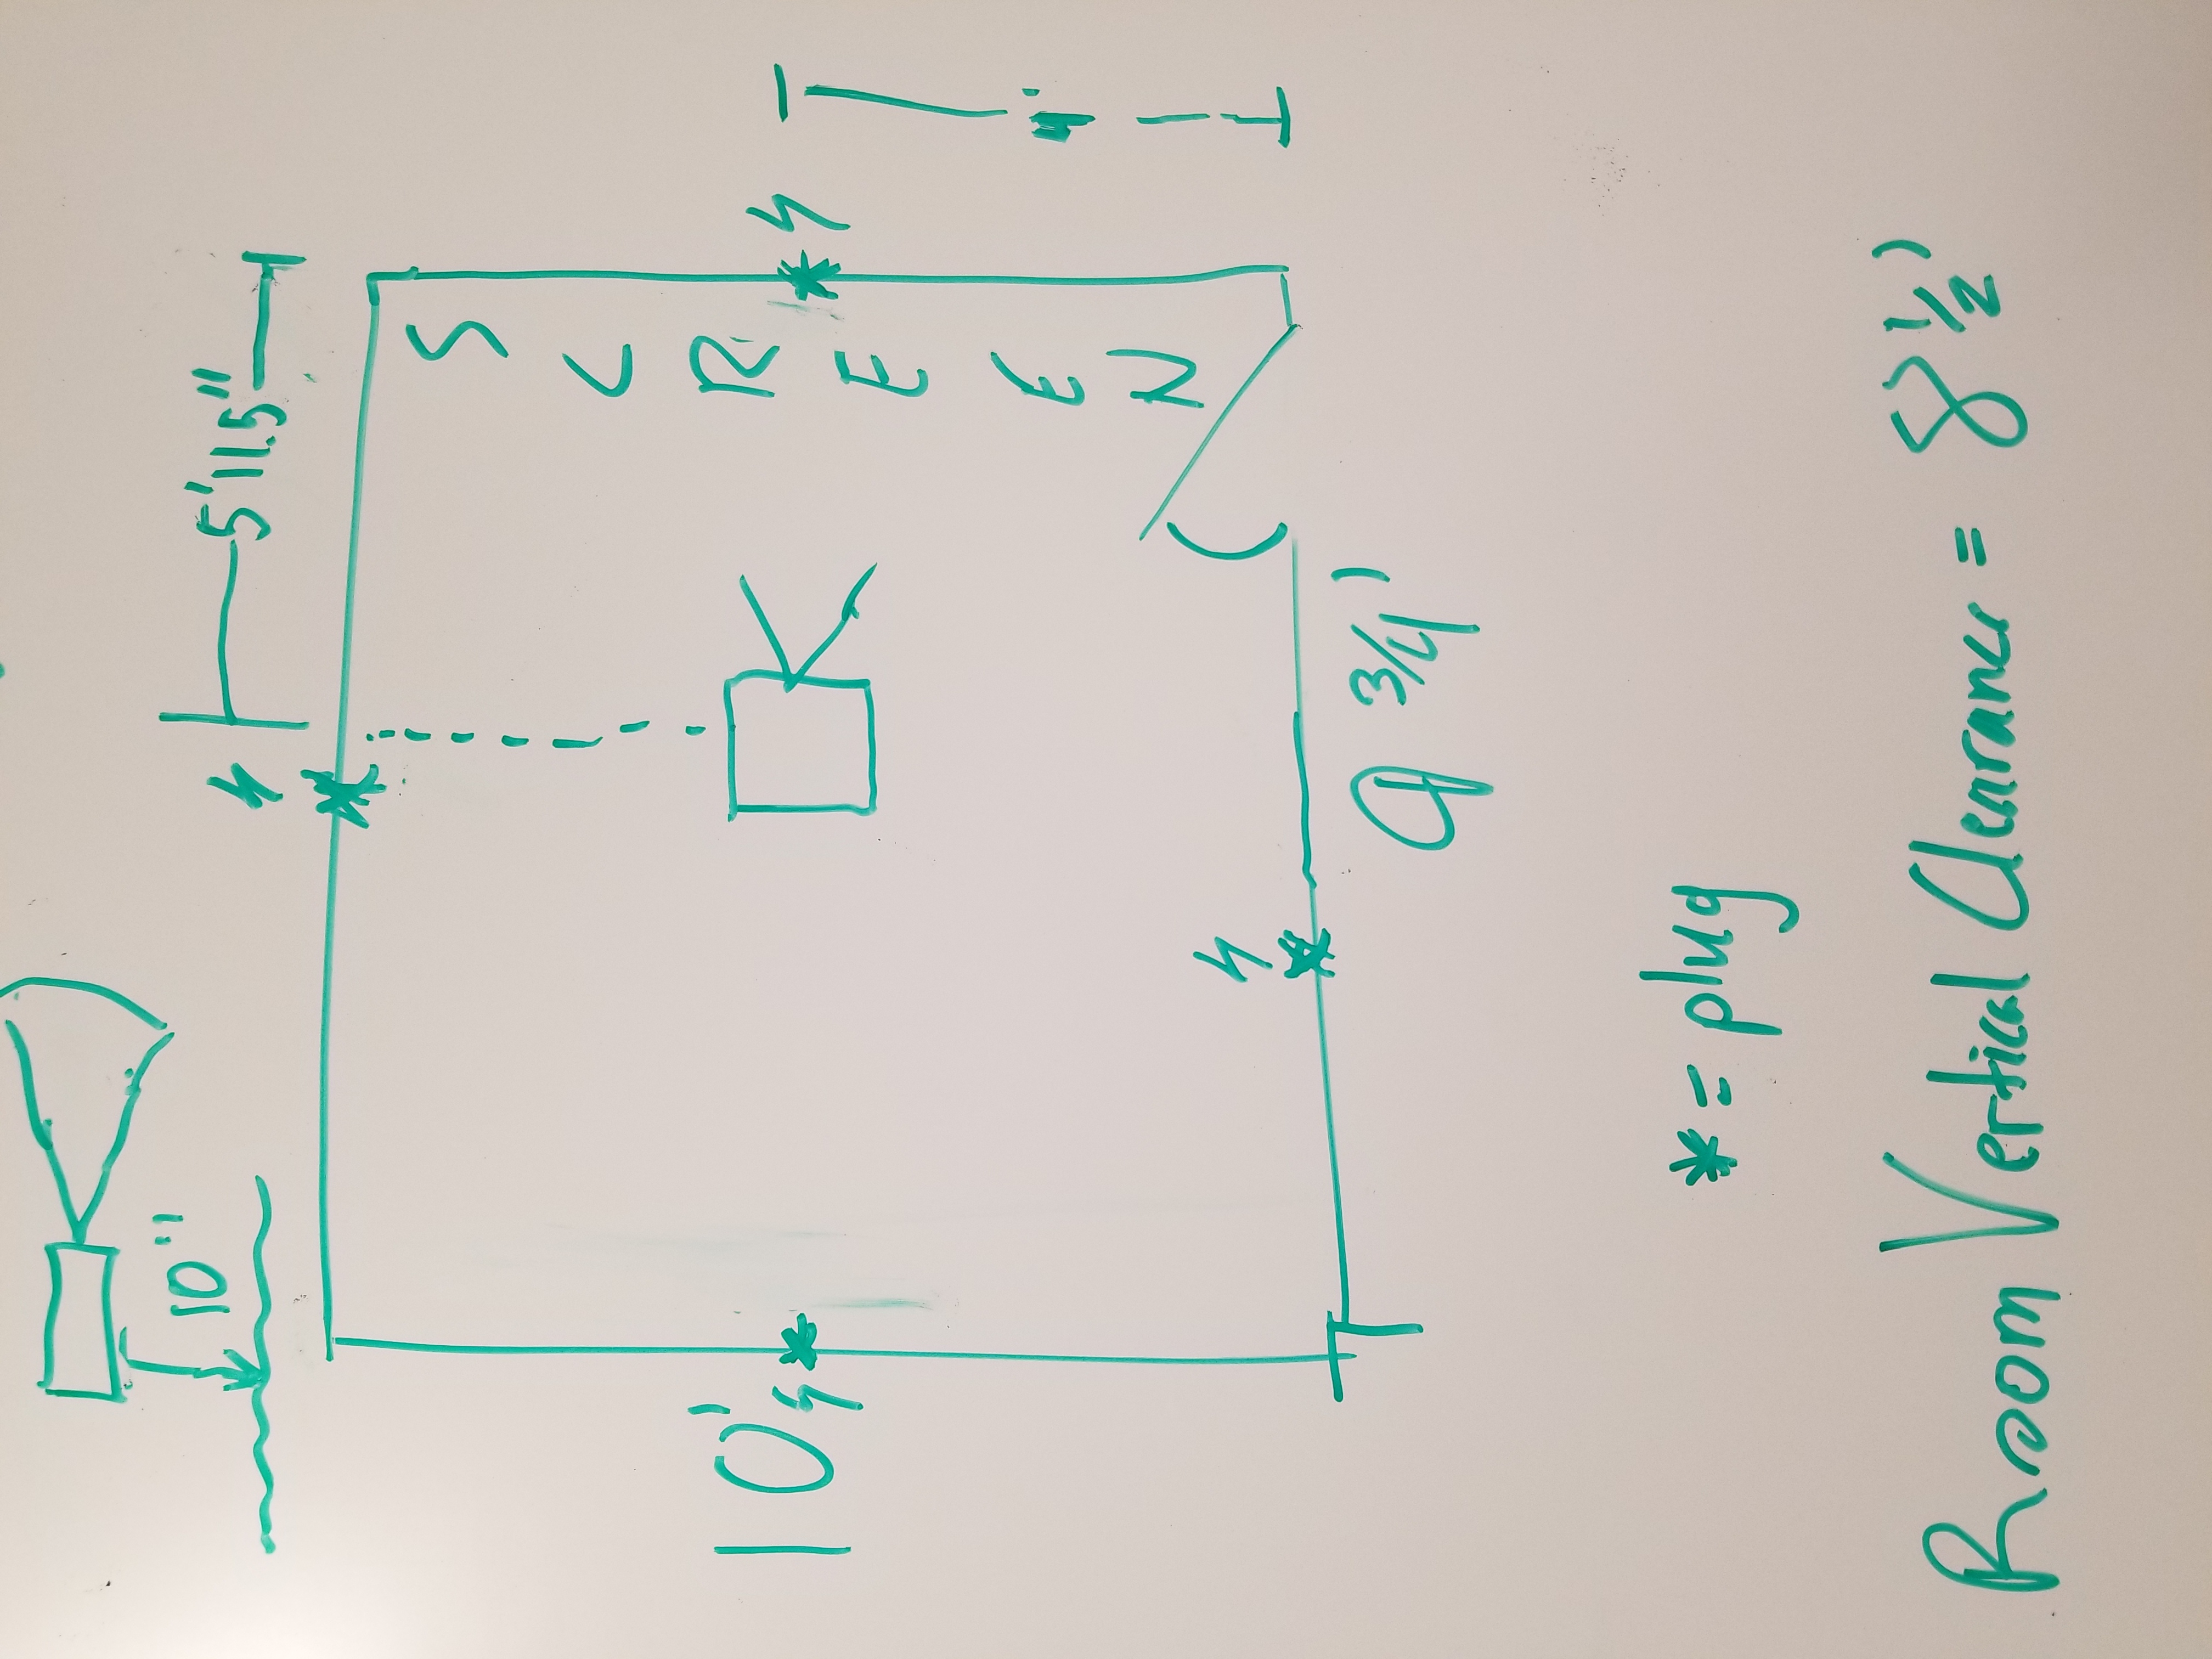 10"
5'11.5"
SCREEN
10'
4'
9 3/4'
* = plug
Room Vertical Clearance = 8 1/2'